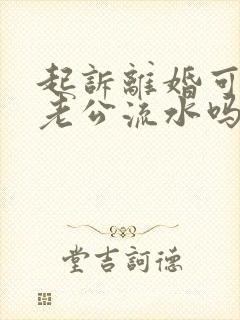 起訴離婚可
老公流水吗
堂吉訶德